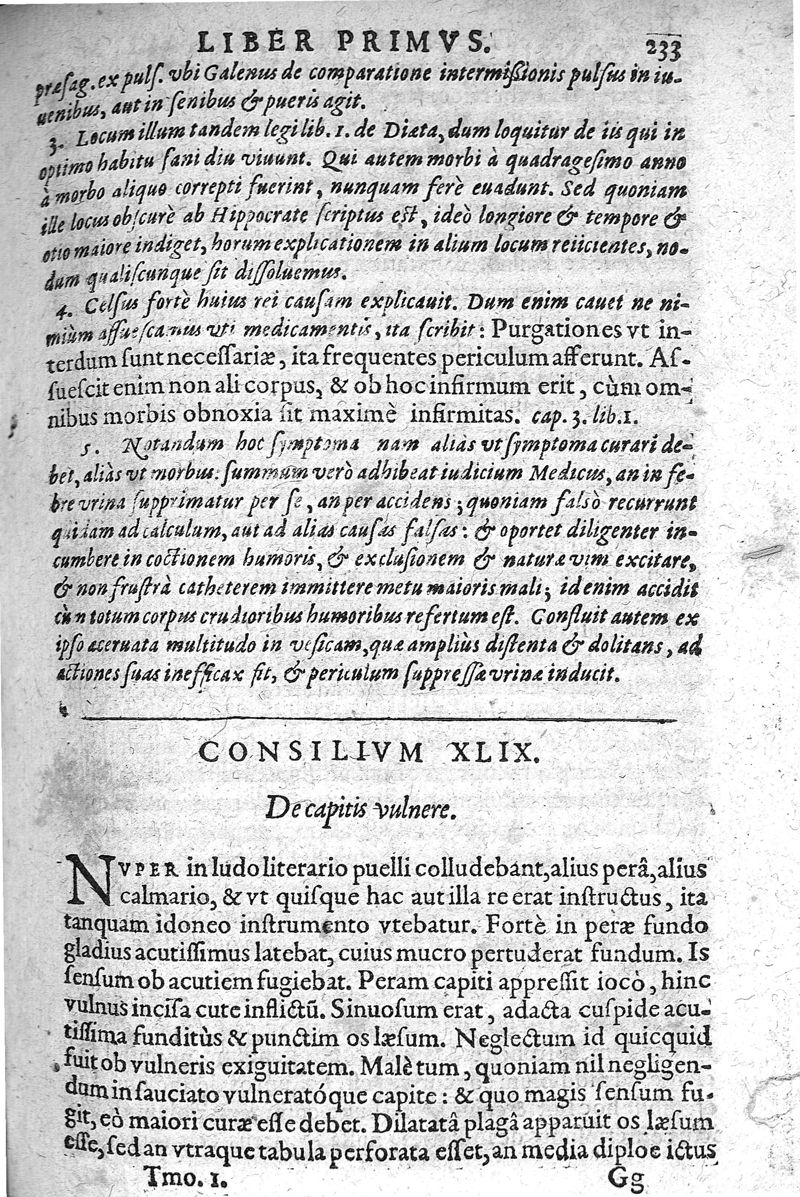 LIBER PRIMVS. 233
præsag. ex pulſ. vbi Galenus de comparatione intermißionis pulſus in iu-
uenibus, aut in ſenibus & pueris agit.
3. Locum illum tandem legi lib. 1. de Diæta, dum loquitur de iis qui in
optimo habitu ſani diu viuunt. Qui autem morbi à quadrageſimo anno
à morbo aliquo correpti fuerint, nunquam ferè euadunt. Sed quoniam
ille locus obſcurè ab Hippocrate ſcriptus eſt, ideò longiore & tempore &
otio maiore indiget, horum explicationem in alium locum reiicientes, no-
dum qualiſcunque ſit diſſoluemus.
4. Celſus fortè huius rei cauſam explicauit. Dum enim cauet ne ni-
miùm aſſueſcamus vti medicamentis, ita ſcribit: Purgationes vt in-
terdum ſunt neceſſariæ, ita frequentes periculum afferunt. Aſ-
ſueſcit enim non ali corpus, & ob hoc infirmum erit, cùm om-
nibus morbis obnoxia ſit maximè infirmitas. cap. 3. lib. 1.
5. Notandum hoc ſymptoma nam aliàs vt ſymptoma curari de-
bet, aliàs vt morbus: ſummum verò adhibeat iudicium Medicus, an in fe-
bre vrina ſupprimatur per ſe, an per accidens; quoniam falsò recurrunt
quidam ad calculum, aut ad alias cauſas falſas: & oportet diligenter in-
cumbere in coctionem humoris, & excluſionem & naturæ vim excitare,
& non fruſtrà catheterem immittere metu maioris mali; id enim accidit
cùm totum corpus crudioribus humoribus refertum eſt. Confluit autem ex
ipſo aceruata multitudo in veſicam, quæ ampliùs diſtenta & dolitans, ad
actiones ſuas inefficax fit, & periculum ſuppreſſæ vrinæ inducit.
CONSILIVM XLIX.
De capitis vulnere.
NVPER in ludo literario puelli colludebant, alius perâ, alius
calmario, & vt quiſque hac aut illa re erat inſtructus, ita
tanquam idoneo inſtrumento vtebatur. Fortè in peræ fundo
gladius acutiſſimus latebat, cuius mucro pertuderat fundum. Is
ſenſum ob acutiem fugiebat. Peram capiti appreſſit iocò, hinc
vulnus inciſa cute inflictũ. Sinuoſum erat, adacta cuſpide acu-
tiſſima funditùs & punctim os læſum. Neglectum id quicquid
fuit ob vulneris exiguitatem. Malè tum, quoniam nil negligen-
dum in ſauciato vulneratóque capite: & quo magis ſenſum fu-
git, eò maiori curæ eſſe debet. Dilatatâ plagâ apparuit os læſum
eſſe, ſed an vtraque tabula perforata eſſet, an media diploe ictus
Tmo. 1. Gg